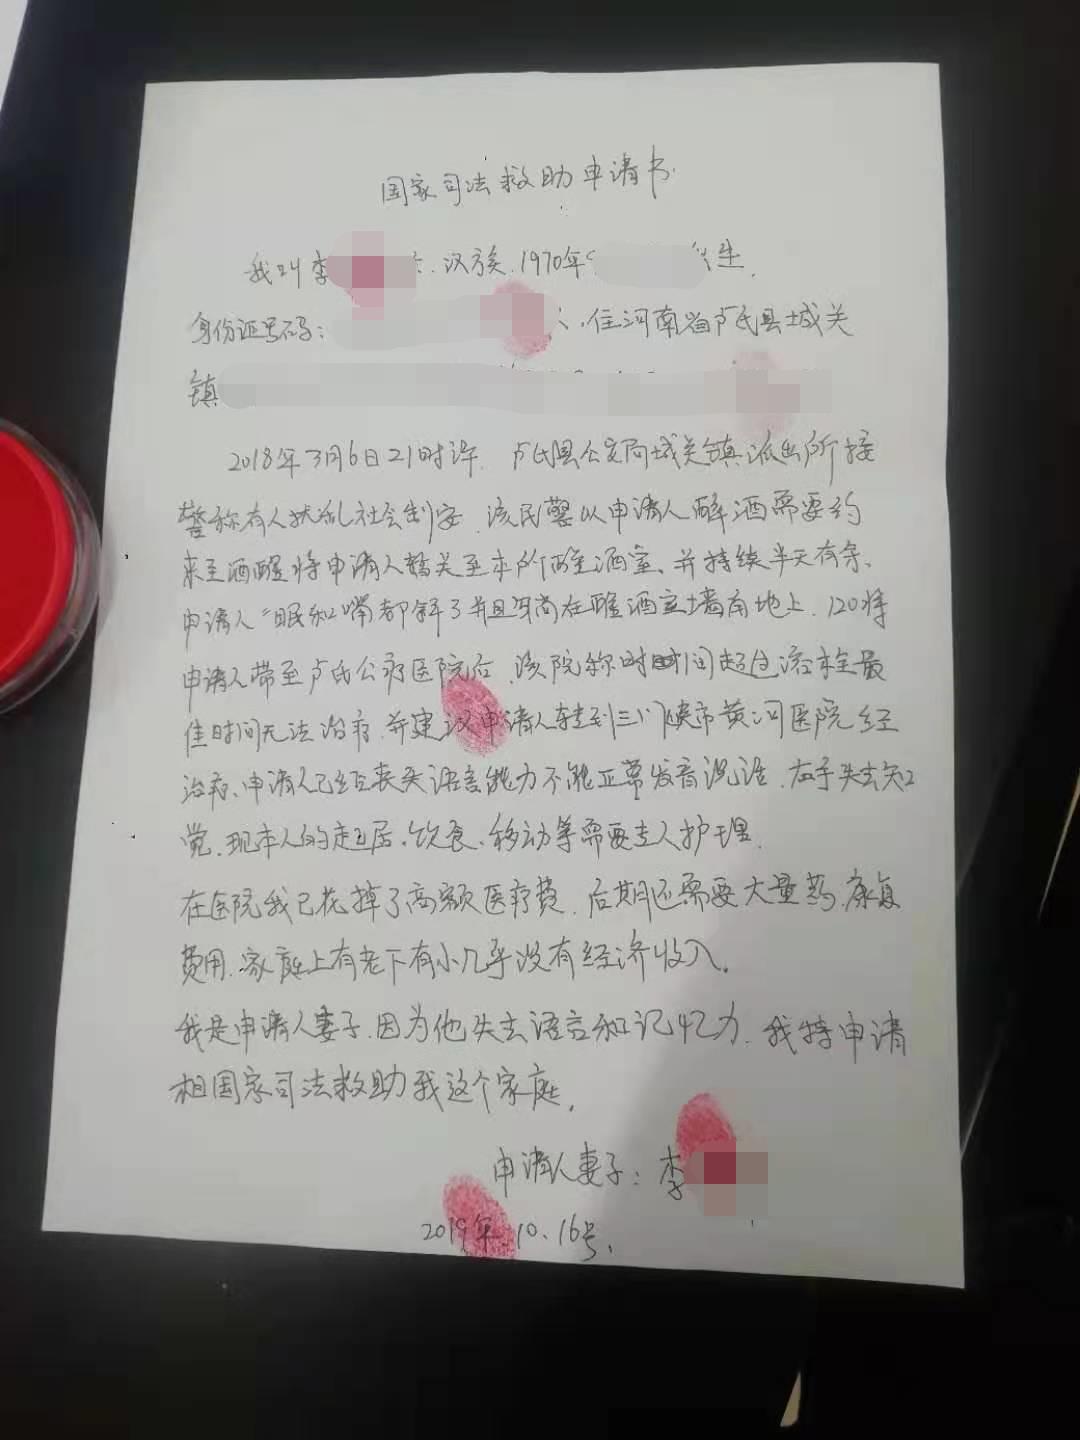 国家司法救助申请书.
我叫李 汉族.1970年 生.
身份证号码: 住河南省卢氏县城关
镇
2018年3月6日21时许.卢氏县公安局城关镇派出所接
警称有人扰乱社会制安.该民警以申请人醉酒需要约
来至酒醒将申请人 关至本所醒酒室、并持续半天有余、
申请人"眼和嘴都斜了并且 尚在醒酒室墙南地上.120将
申请人带至卢氏公疗医院后.该院称时时间超过溶栓最
佳时间无法治疗.并建议申请人转到三门峡市黄河医院经
治疗、申请人已经丧失语言能力不能正常发音说话.右手失去知
觉.现本人的起居、饮食、移动等需要专人护理.
在医院我已花掉了高额医疗费.后期还需要大量药.康复
费用.家庭上有老下有小几乎没有经济收入.
我是申请人妻子.因为他失去语言和记忆力.我特申请
相国家司法救助我这个家庭.
申请人妻子:李
2019年.10.16号.